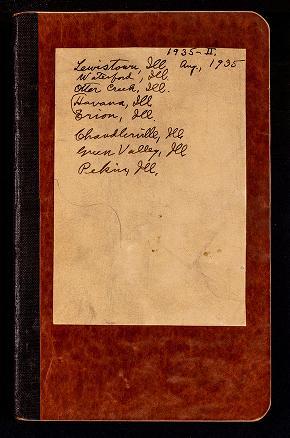 1935-II.
Lewistown, Ill. Aug, 1935
Waterford, Ill.
Otter Creek, Ill.
Havana, Ill
Ill.
Chandlerville, Ill
Green Valley, Ill
Pekin, Ill.